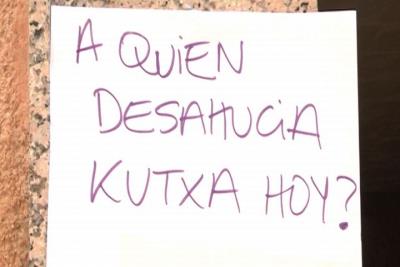 A QUiEN
DESAHUCiA
KUTXA HOY?